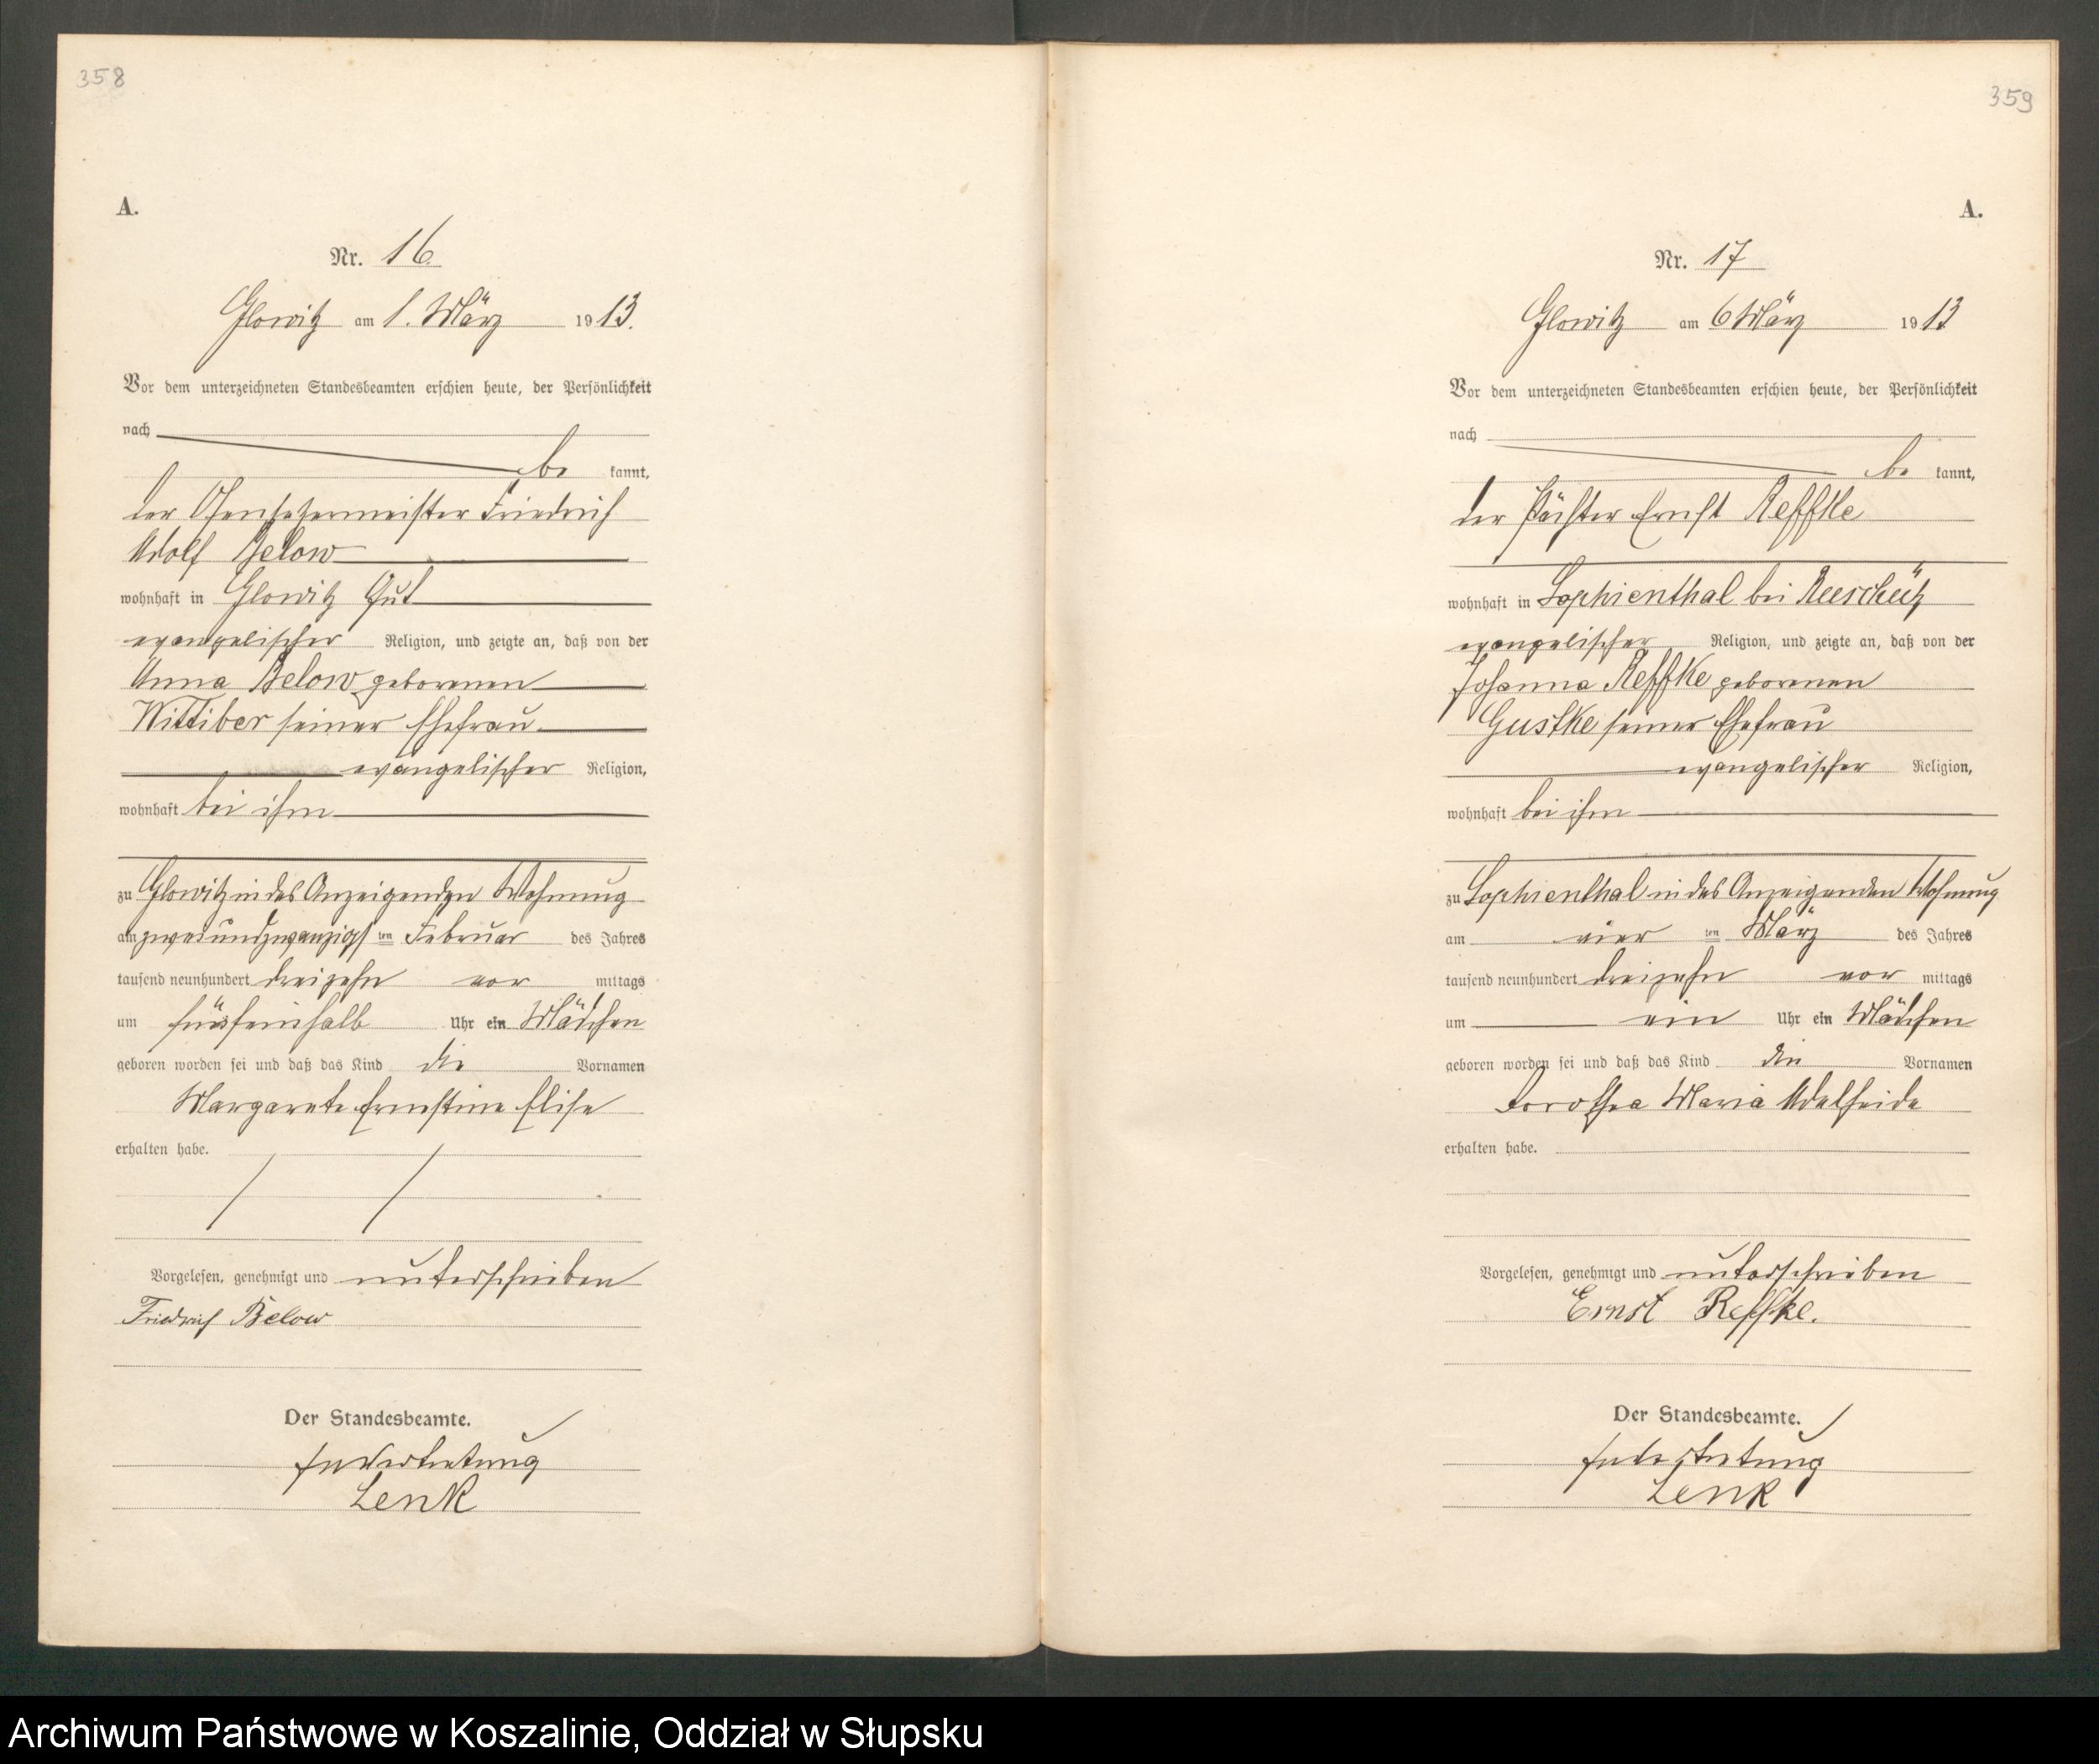 358
A.
Nr. 16
Glowitz am 1. März 1913.
Vor dem unterzeichneten Standesbeamten erschien heute, der Persönlichkeit
nach
be kannt,
der Ofensetzermeister Friedrich
Adolf Below
wohnhaft in Glowitz Gut
evangelischer Religion, und zeigte an, daß von der
Anna Below geborenen
Wittiber seiner Ehefrau
evangelischer Religion,
wohnhaft bei ihm
zu Glowitz in des Anzeigenden Wohnung
am zweiundzwanzigsten Februar des Jahres
tausend neunhundert dreizehn vor mittags
um fünfeinhalb Uhr ein Mädchen
geboren worden sei und daß das Kind die Vornamen
Margarete Ernstine Elise
erhalten habe.
Vorgelesen, genehmigt und unterschrieben
Friedrich Below
Der Standesbeamte.
In Vertretung
Lenk
359
A.
Nr. 17
Glowitz am 6 März 1913
Vor dem unterzeichneten Standesbeamten erschien heute, der Persönlichkeit
nach
be kannt,
der Pächter Ernst Reffke
wohnhaft in Sophienthal bei Ruschütz
evangelischer Religion, und zeigte an, daß von der
Johanna Reffke geborenen
Gustke seiner Ehefrau
evangelischer Religion,
wohnhaft bei ihm
zu Sophienthal in des Anzeigenden Wohnung
am vier ten März des Jahres
tausend neunhundert dreizehn vor mittags
um ein Uhr ein Mädchen
geboren worden sei und daß das Kind die Vornamen
Dorothea Maria Adelheide
erhalten habe.
Vorgelesen, genehmigt und unterschrieben
Ernst Reffke.
Der Standesbeamte.
In Vertretung
Lenk
Archiwum Państwowe w Koszalinie, Oddział w Słupsku